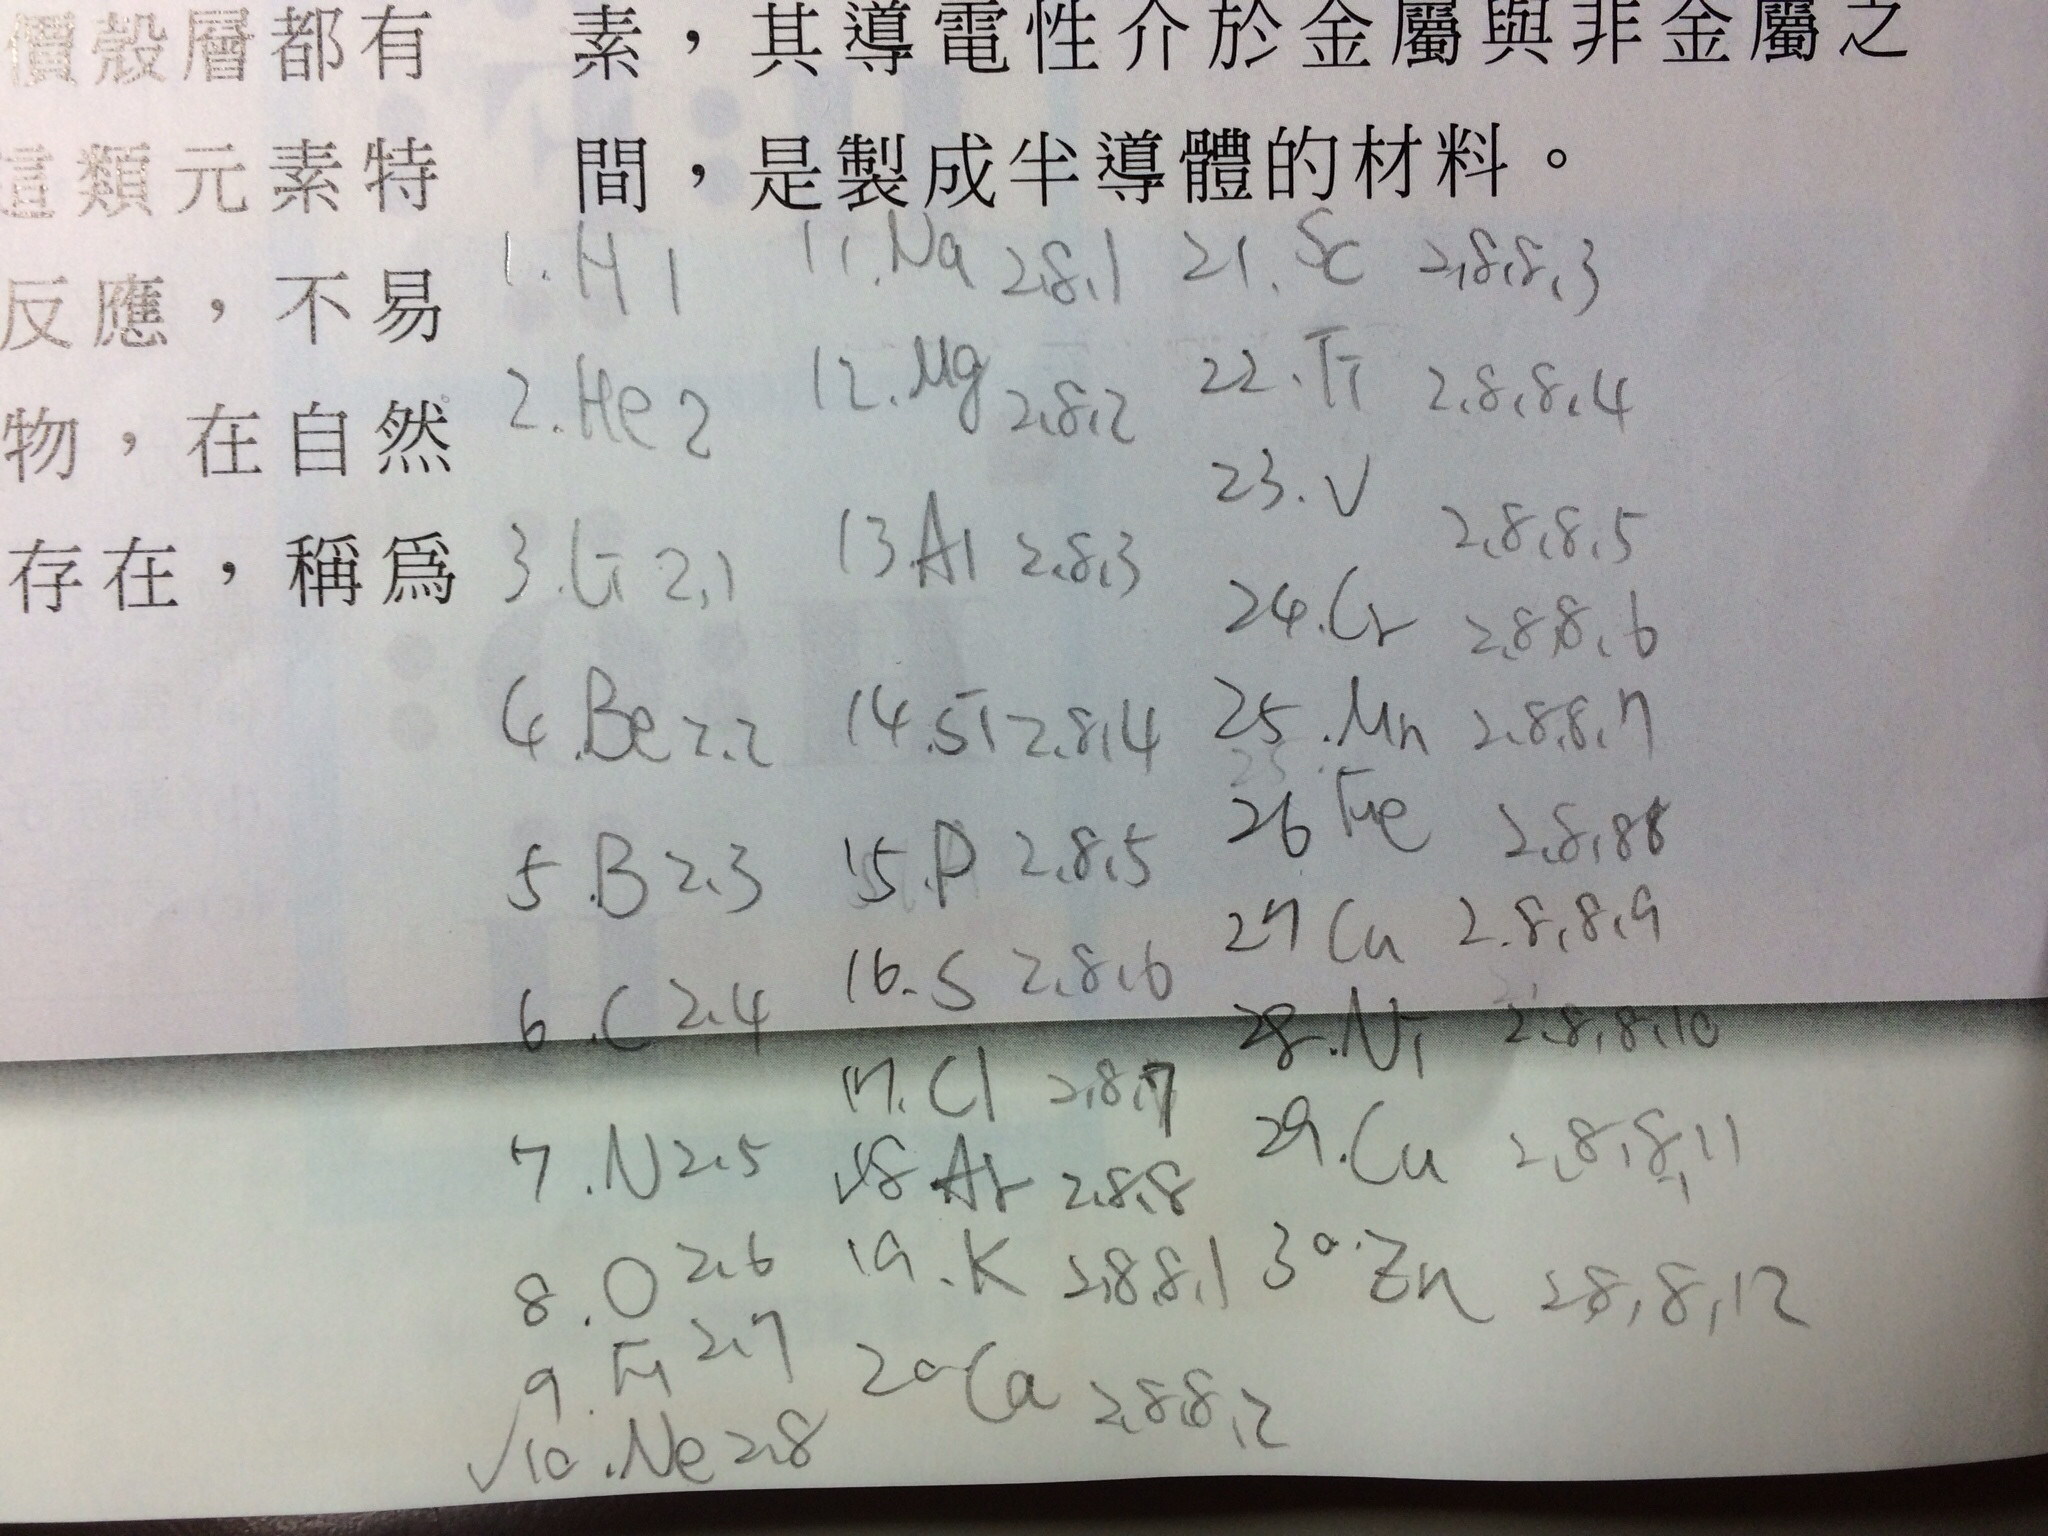 價殼層都有
這類元素特
反應，不易
物，在自然
存在，稱爲
素，其導電性介於金屬與非金屬之
間，是製成半導體的材料。
1.H 1
2.He 2
3.Li 2,1
4.Be 2,2
5.B 2,3
6.C 2,4
7.N 2,5
8.O 2,6
9. 2,7
√10.Ne 2,8
11.Na 2,8,1
12.Mg 2,8,2
13.Al 2,8,3
14.Si 2,8,4
15.P 2,8,5
16.S 2,8,6
17.Cl 2,8,7
√18 Ar 2,8,8
19.K 2,8,8,1
20 Ca 2,8,8,2
21.Sc 2,8,8,3
22.Ti 2,8,8,4
23.V 2,8,8,5
24.Cr 2,8,8,6
25.Mn 2,8,8,7
26 Fe 2,8,8 8
27 Cu 2,8,8,9
28.Ni 2,8,8,10
29.Cu 2,8,8,11
30.Zn 2,8,8,12